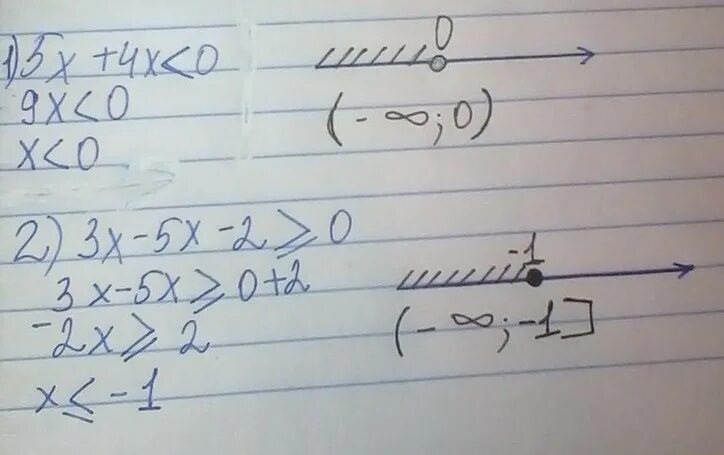 1) 5x + 4x < 0
9x < 0
x < 0
0
(-∞; 0)
2) 3x - 5x - 2 ⩾ 0
3x - 5x ⩾ 0 + 2
-2x ⩾ 2
x ≤ -1
-1
(-∞; -1]